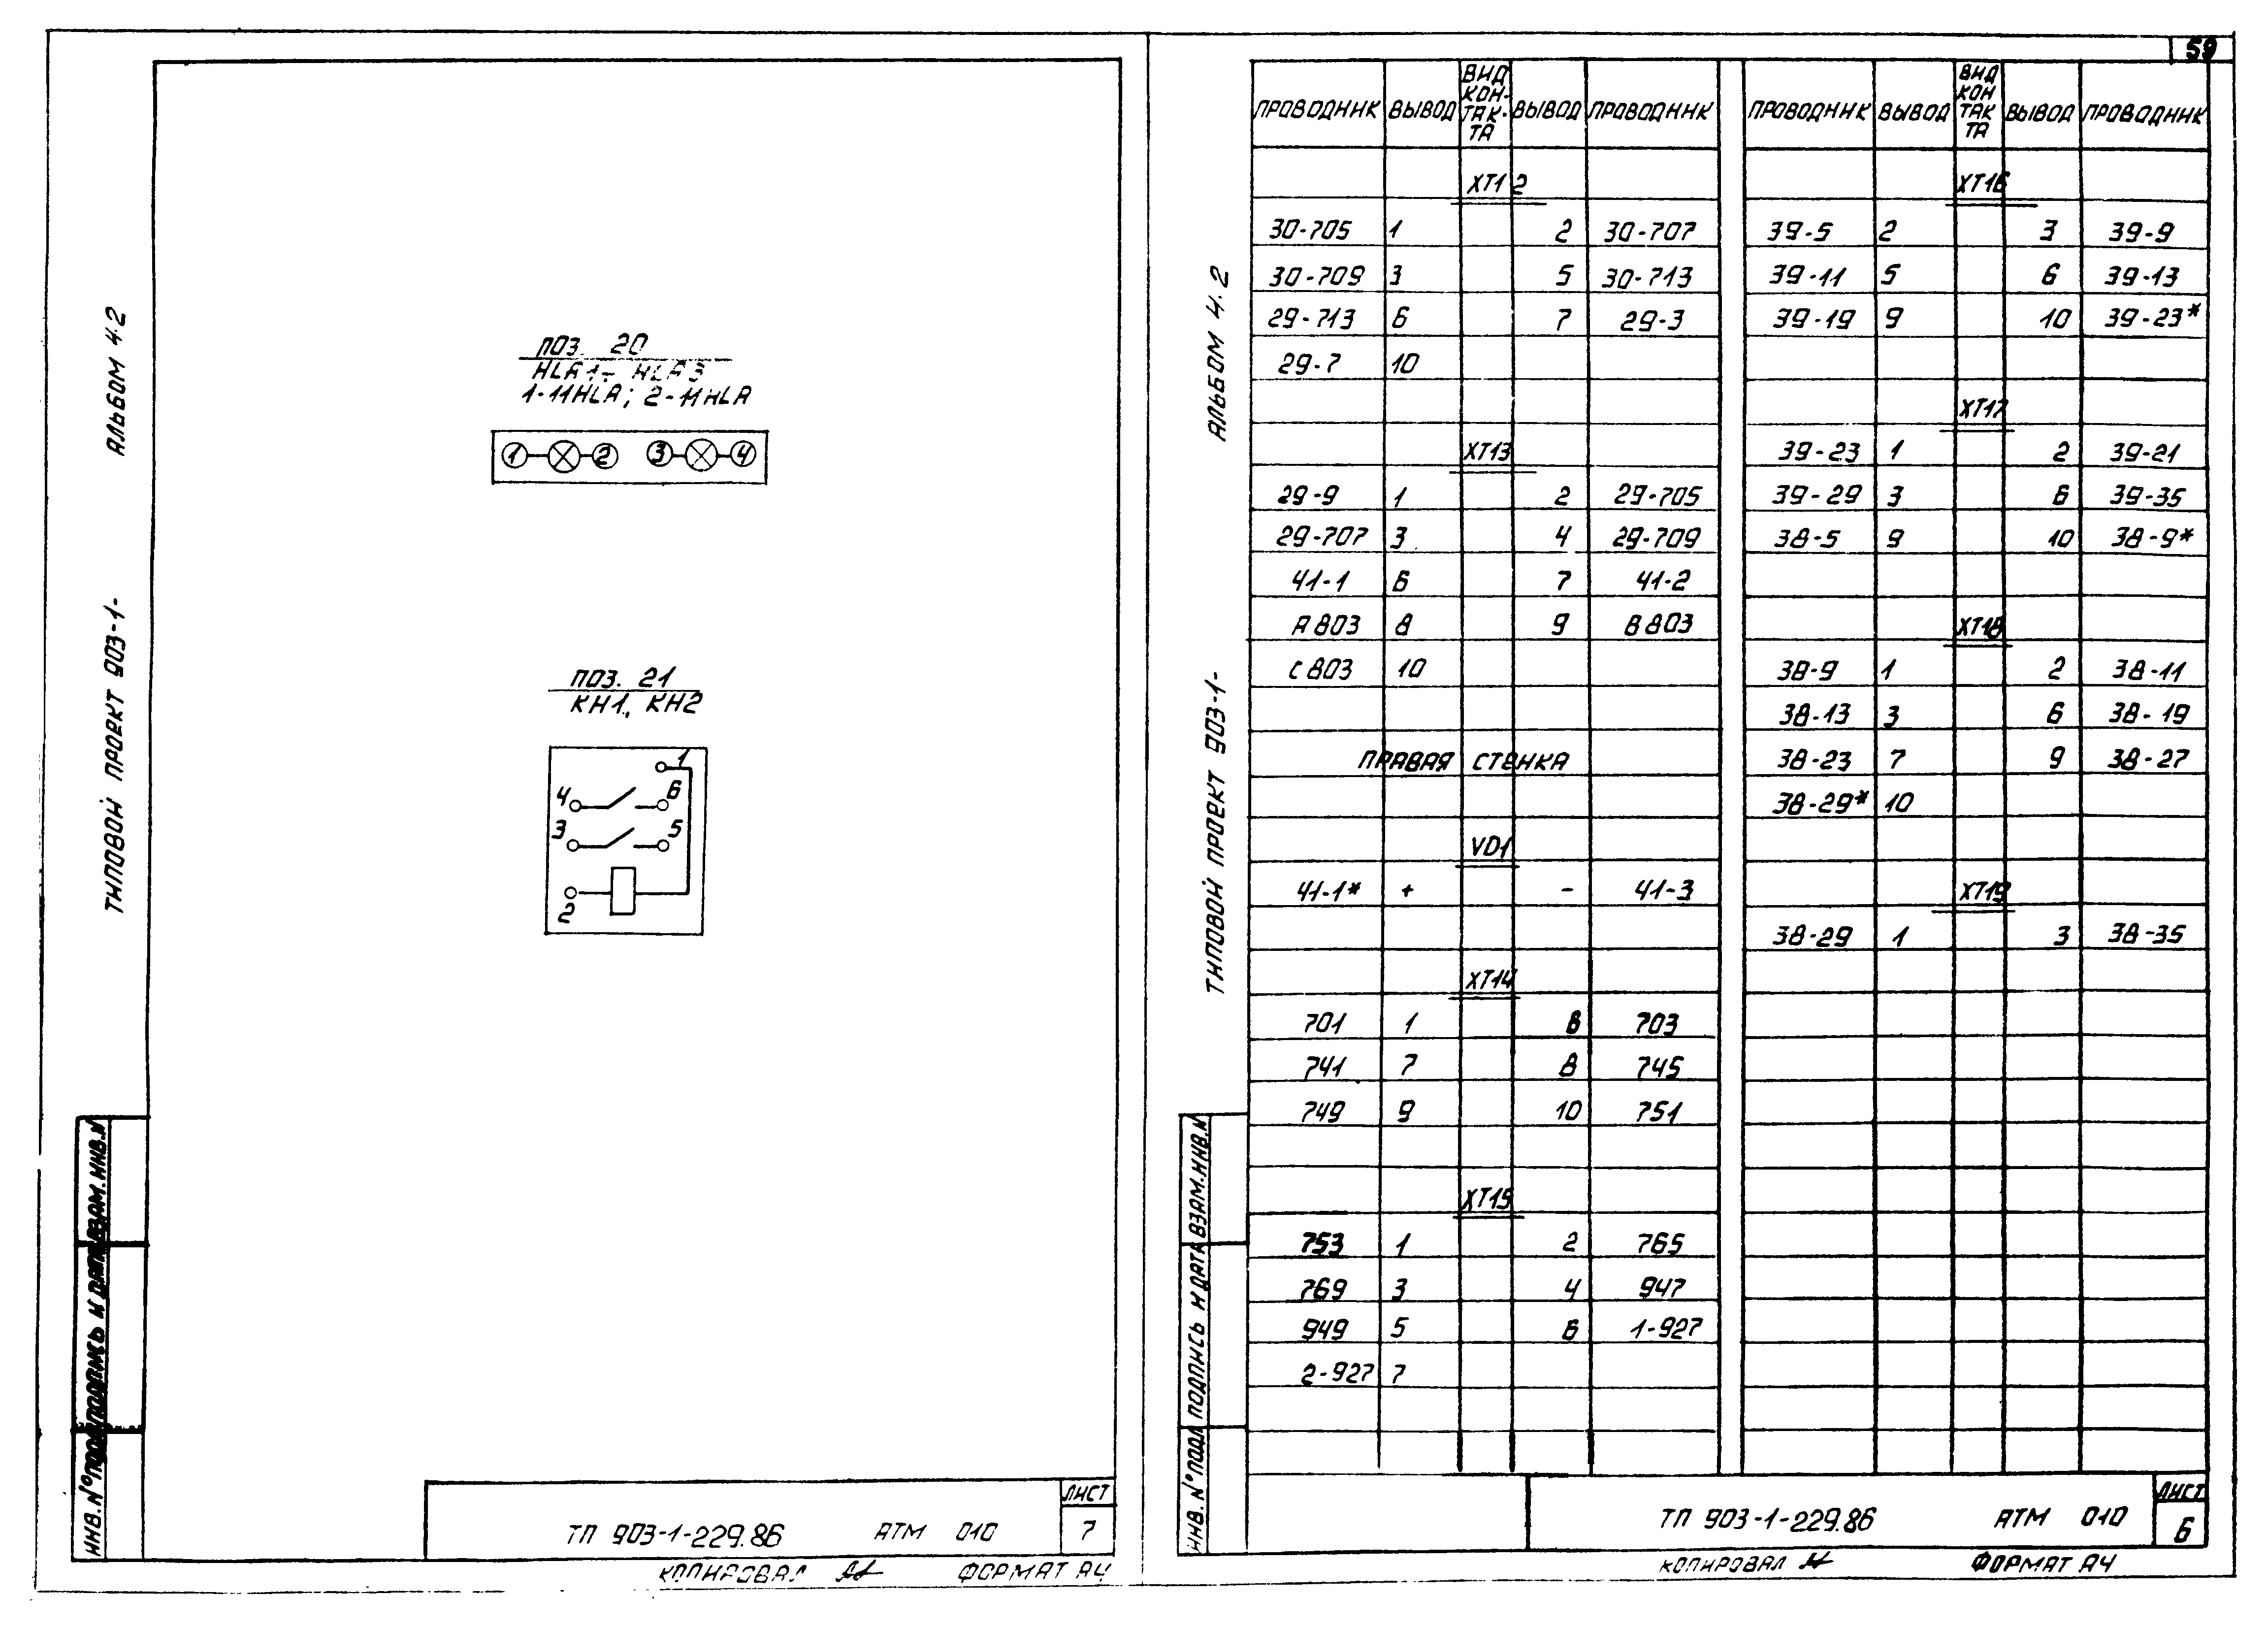 59
АЛЬБОМ 4.2
ТИПОВОЙ ПРОЕКТ 903-1-
ПОЗ. 20
HLA1 – HLA3
1-11HLA; 2-11HLA
1 2 3 4
ПОЗ. 21
КН1, КН2
1
4 6
3 5
2
ВЗАМ.ИНВ.N
ПОДПИСЬ И ДАТА
ИНВ.N°ПОДЛ
ЛИСТ
ТП 903-1-229.86 АТМ 010 7
КОПИРОВАЛ ФОРМАТ А4
АЛЬБОМ 4.2
ТИПОВОЙ ПРОЕКТ 903-1-
ПРОВОДНИК ВЫВОД ВИД КОН-ТАК-ТА ВЫВОД ПРОВОДНИК
XT12
30-705 1 2 30-707
30-709 3 5 30-713
29-713 6 7 29-3
29-7 10
XT13
29-9 1 2 29-705
29-707 3 4 29-709
41-1 6 7 41-2
А803 8 9 В803
С803 10
ПРАВАЯ СТЕНКА
VD1
41-1* + - 41-3
XT14
701 1 6 703
741 7 8 745
749 9 10 751
XT15
753 1 2 765
769 3 4 947
949 5 6 1-927
2-927 7
ПРОВОДНИК ВЫВОД ВИД КОН ТАК ТА ВЫВОД ПРОВОДНИК
XT16
39-5 2 3 39-9
39-11 5 6 39-13
39-19 9 10 39-23*
XT17
39-23 1 2 39-21
39-29 3 6 39-35
38-5 9 10 38-9*
XT18
38-9 1 2 38-11
38-13 3 6 38-19
38-23 7 9 38-27
38-29* 10
XT19
38-29 1 3 38-35
ВЗАМ.ИНВ.N
ПОДПИСЬ И ДАТА
ИНВ.N°ПОДЛ
ЛИСТ
ТП 903-1-229.86 АТМ 010 6
КОПИРОВАЛ ФОРМАТ А4